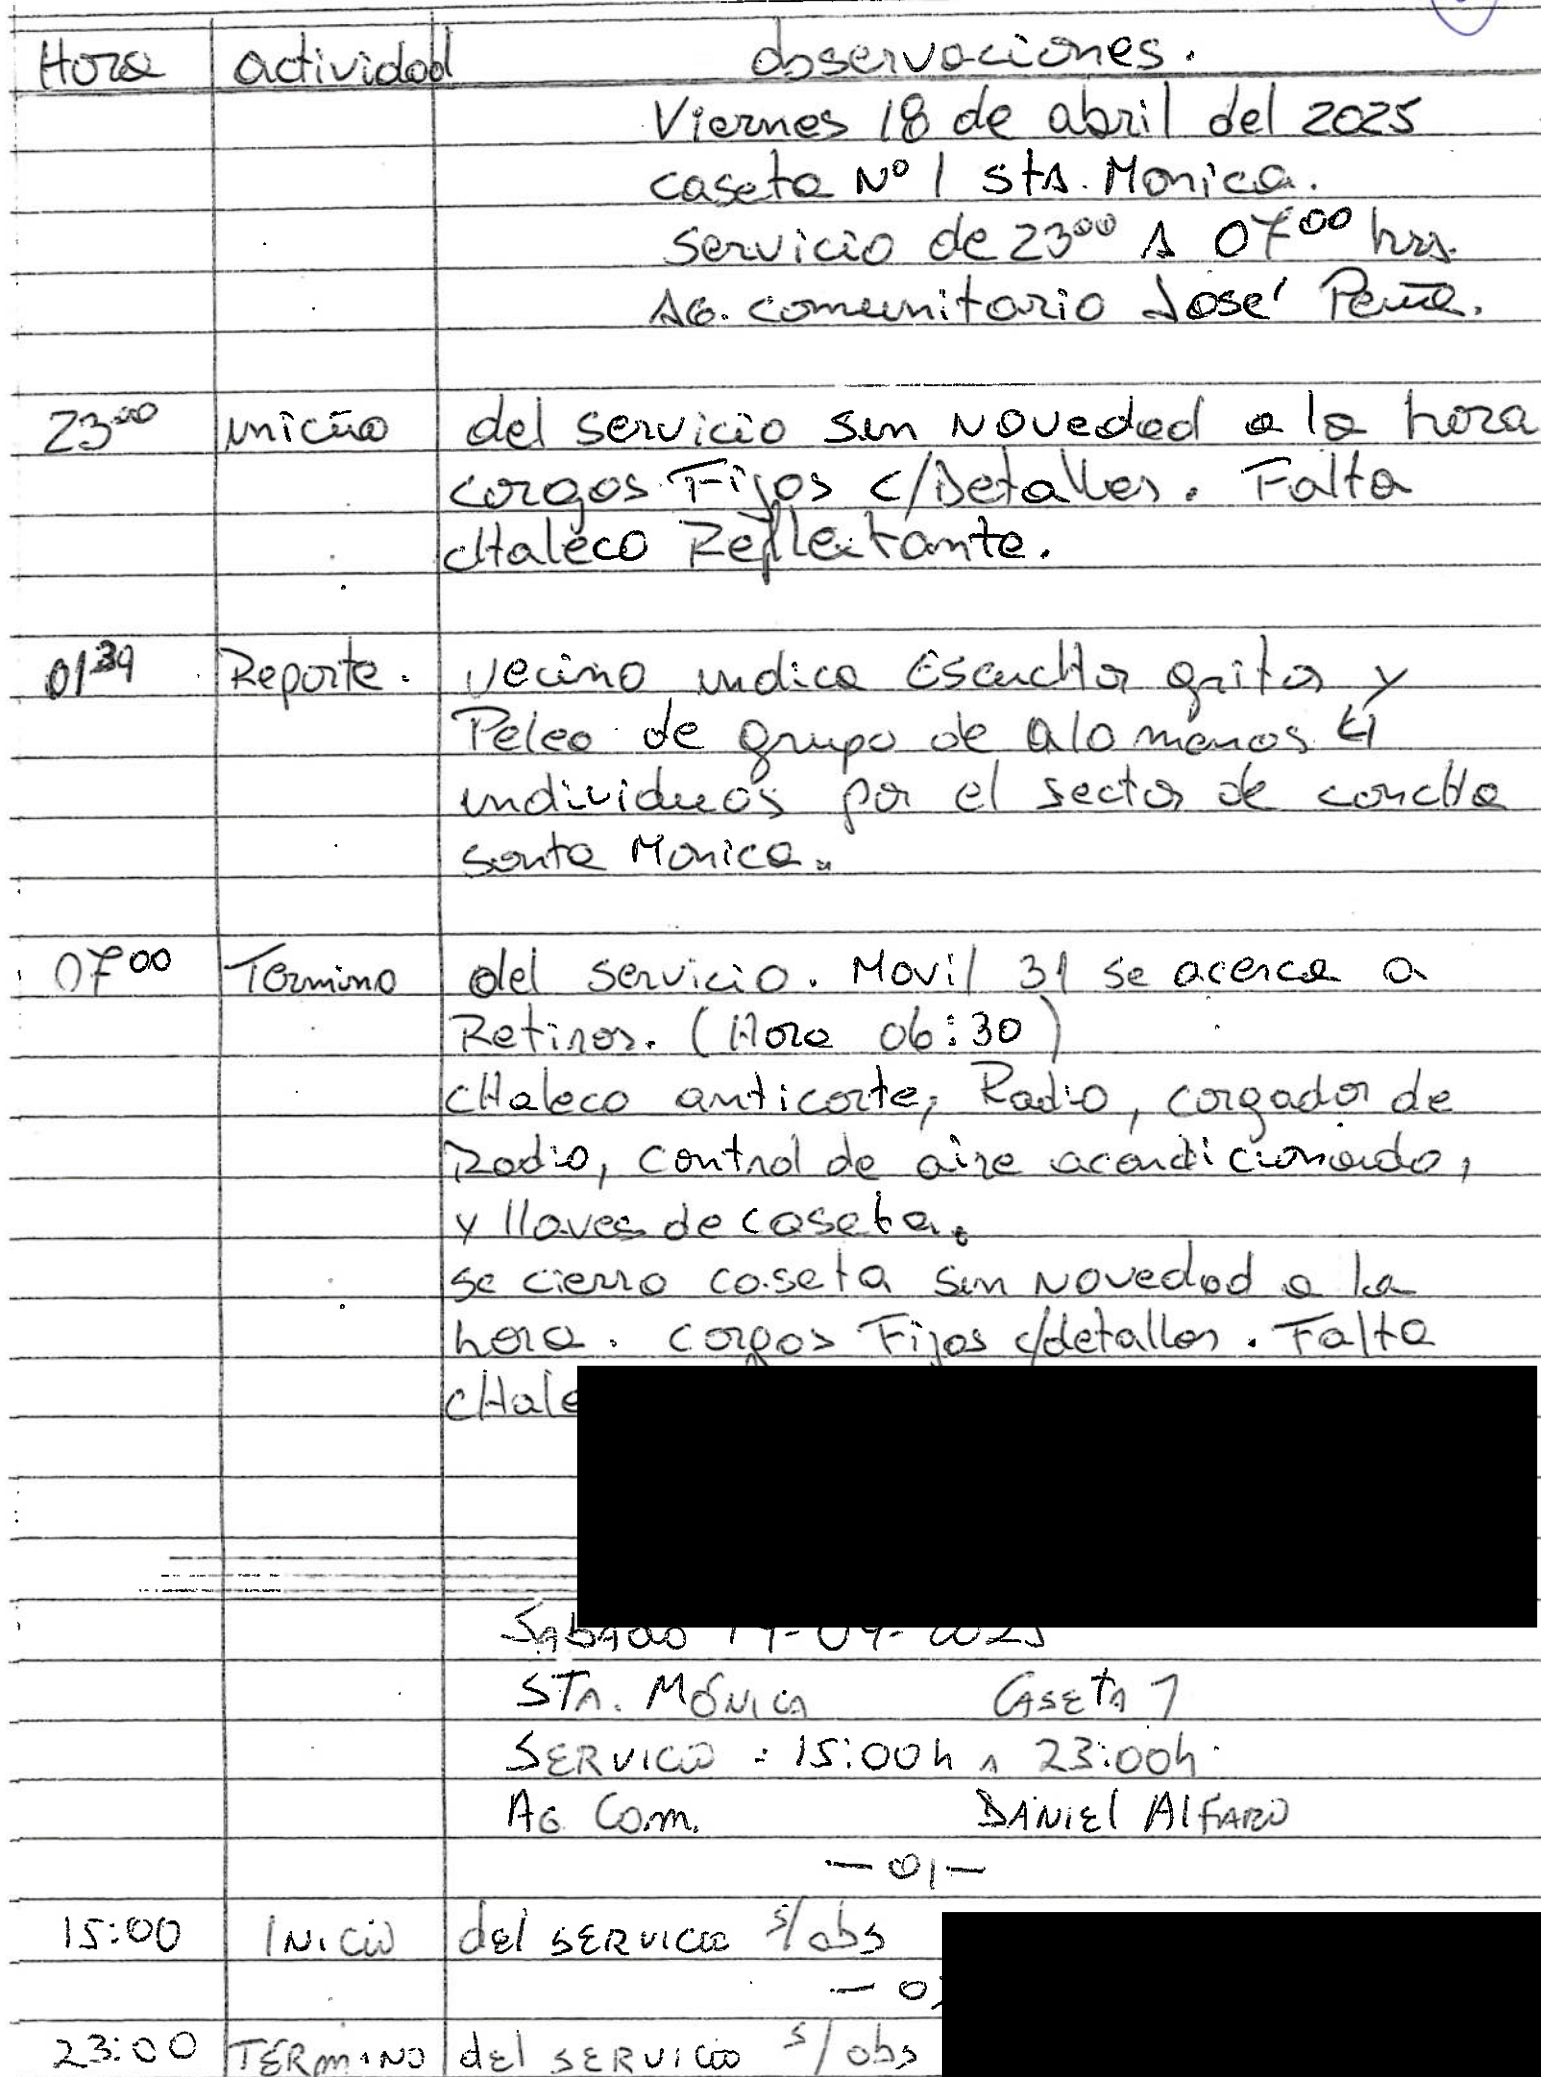 Hora actividad observaciones.
Viernes 18 de abril del 2025
caseta Nº 1 sta. Monica.
Servicio de 23⁰⁰ A 07⁰⁰ hrs.
AG. comunitario José Peña.
23⁰⁰ inicio del servicio sin novedad a la hora
cargos Fijos c/Detalles. Falta
cHaleco Reflectante.
01³⁹ Reporte. vecino indica EscucHar gritos y
Pelea de grupo de alo menos 4
individuos por el sector de concHa
santa Monica.
07⁰⁰ Termino del servicio. Movil 31 se acerca a
Retirar. (Hora 06:30)
cHaleco anticorte, Radio, cargador de
Radio, control de aire acondicionado,
y llaves de caseta.
se cierro caseta sin novedad a la
hora. cargos Fijos c/detalles. Falta
cHale
SABADO 19-04-2025
STA. MÓNICA CASETA 1
SERVICIO : 15:00h A 23:00h.
AG Com. DANIEl AlFARO
—01—
15:00 INICIO del SERVICIO s/obs
—0
23:00 TÉRMINO del SERVICIO s/obs